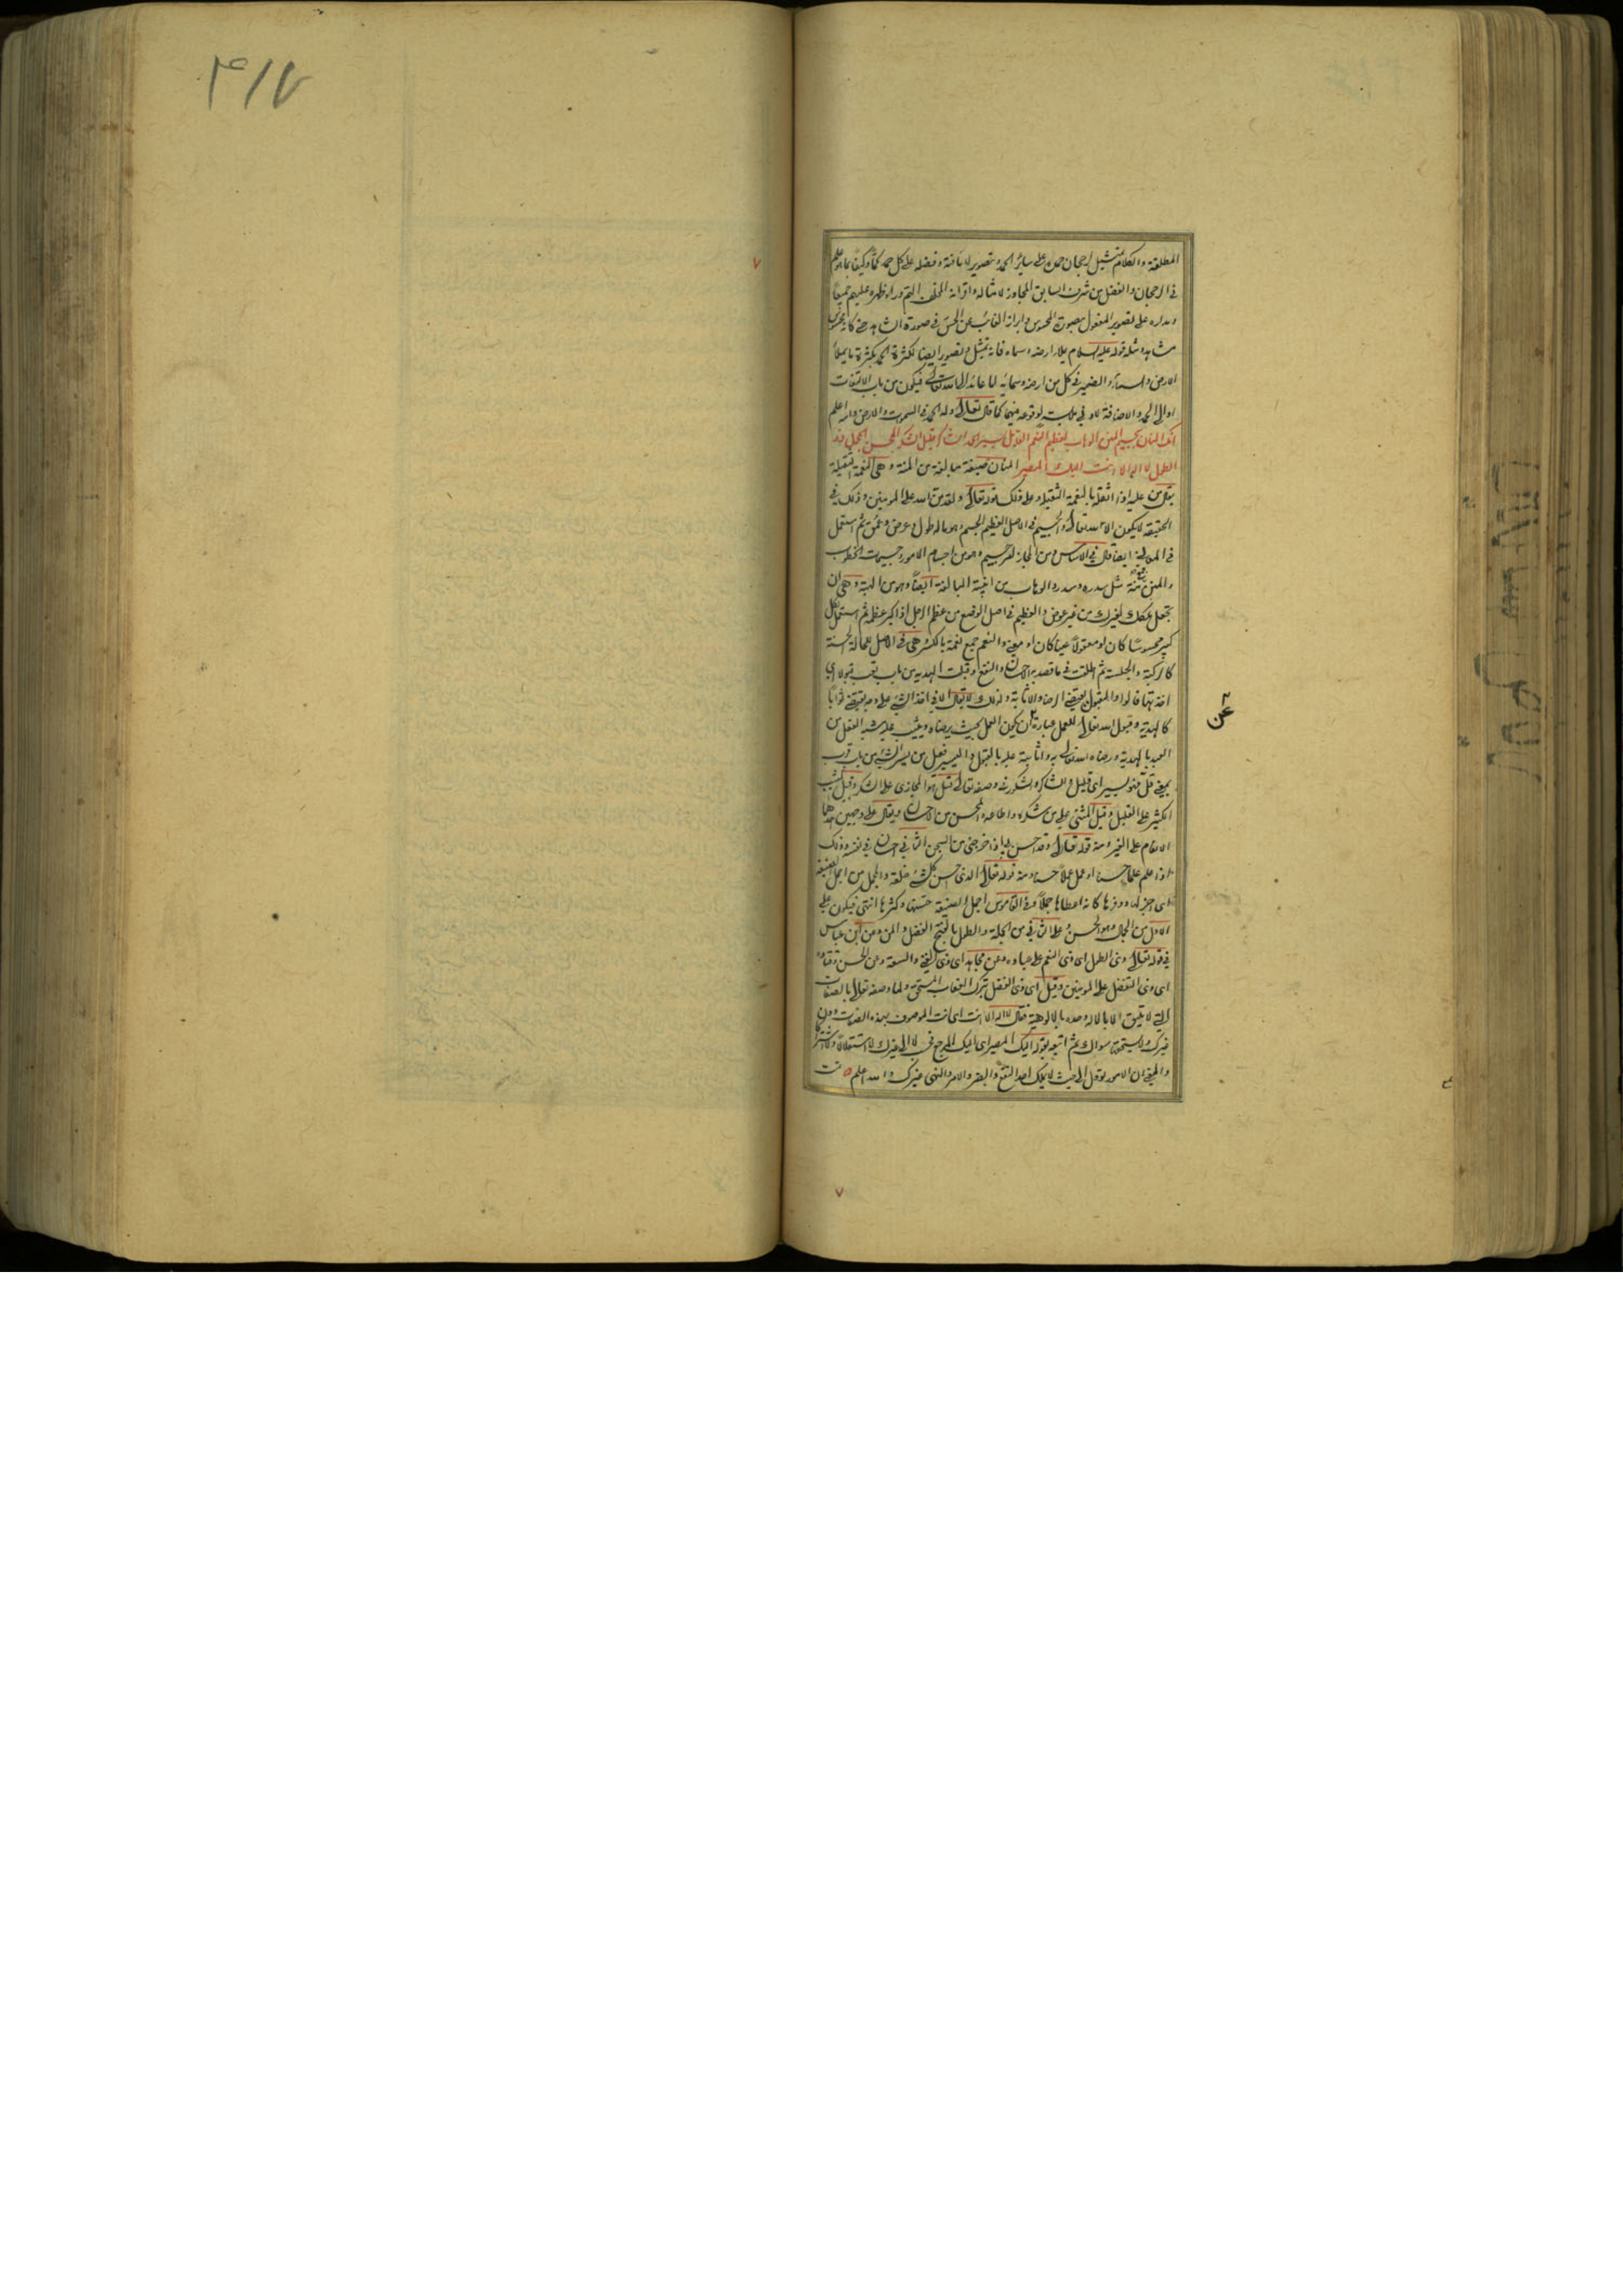 ٣١٧
المطلقة والكلام تمثيل لرجحان حمده على سائر الحمد وتصوير لانافته وفضله على كل حمد كماً وكيفاً بما هو علم
في الرجحان والفضل من شرف السابق المجاوز لامثاله واقرانه الملتم وراء ظهره عليهم جميعاً
ومداره على تصوير المعقول بصورة المحسوس وابراز الغائب عن الحس في صورة الشاهد حتى كانه محسوس
مشاهد ومثله قوله عليه السلام ملاء ارضه وسماءه فانه تمثيل وتصوير ايضا لكثرة الحمد بكثرة ما يملأ
الارض والسماء والضمير في كل من ارضه وسمائه اما عائد الى الله تعالى فيكون من باب الالتفات
او الى الحمد والاضافة لادنى ملابسة لوقوعه فيهما كما قال تعالى وله الحمد في السموات والارض والله اعلم
انك المنان بجسيم المنن الوهاب لعظيم النعم القابل يسير الحمد الشاكر قليل الشكر المحسن المجمل ذو
الطول لا اله الا انت اليك المصير المنان صيغة مبالغة من المنة وهي النعمة الثقيلة
يقال من عليه اذا اثقله بالنعمة الثقيلة وعلى ذلك قوله تعالى ولقد من الله على المؤمنين وذلك في
الحقيقة لا يكون الا لله تعالى والجسيم في الاصل العظيم الجسم وهو ماله طول وعرض وعمق ثم استعمل
في المعاني ايضا قال في الاساس ومن المجاز امر جسيم وهو من اجسام الامور وجسيمات الخطوب
والمنن جمع منة مثل سدرة وسدر والوهاب من ابنية المبالغة ايضاً وهو من الهبة وهي ان
تجعل ملكك لغيرك من غير عوض والعظيم في اصل الوضع من عظم الرجل اذا كبر عظمه ثم استعمل لكل
كبير محسوسًا كان او معقولاً عيناً كان او معنى والنعم جمع نعمة بالكسر وهي في الاصل للحالة الحسنة
كالركبة والجلسة ثم اطلقت في ما قصد به الاحسان والنفع وقبلت الهدية من باب تعب قبولا اي
اخذتها قالوا والقبول يقتضي الرضا والاثابة ولذلك لا يقال الا في اخذ الشيء على وجه يقتضي ثواباً
كالهدية وقبول الله تعالى للعمل عبارة عن ان يكون العمل بحيث يرضاه ويثيب عليه شبه الفعل من
عن
العبد بالهدية ورضاه الله تعالى به واثابته عليه بالقبول واليسير فعيل من يسر الشيء من باب قرب
بمعنى قل فهو يسير اي قليل والشاكر والشكور في وصفه تعالى قيل هو المجازي على الشكر وقيل المثيب
الكثير على القليل وقيل المثنى على من شكره واطاعه والمحسن من الاحسان ويقال على وجهين احدهما
الانعام على الغير ومنه قوله تعالى وقد احسن بي اذ اخرجني من السجن الثاني احسان في نفسه وذلك
اذا علم علماً حسنا او عمل عملاً حسنا ومنه قوله تعالى الذي احسن كل شيء خلقه والمجمل من اجمل الصنيعة
اي اجزلها ووفرها كانه اعطاها جملاً وفي القاموس اجمل الصنيعة حسنها وكثرها انتهى فيكون على
الاول من الجمال وهو الحسن وعلى الثاني من الجملة والطول بالفتح الفضل والمن وعن ابن عباس
في قوله تعالى ذي الطول اي ذي النعم على عباده وعن مجاهد اي ذي الغنى والسعة وعن الحسن وقتاده
اي ذي التفضل على المؤمنين وقيل اي ذي الفضل بترك العقاب المستحق ولما وصفه تعالى بالصفات
التي لا تليق الا بالاله وحده بالالوهية فقال لا اله الا انت اي انت الموصوف بهذه الصفات دون
غيرك ولا يستحقها سواك ثم اتبعه بقوله اليك المصير اي اليك المرجع في لا الى غيرك لا استقلالاً ولا اشتراكا
والمعنى ان الامور تؤول الى حيث لا يملك احد النفع والضر والامر والنهى غيرك والله اعلم